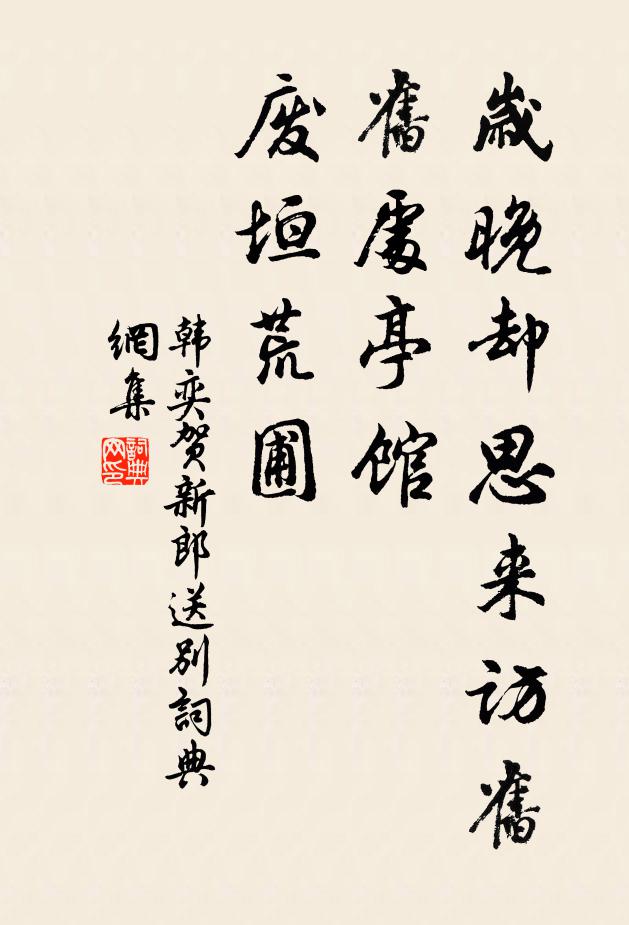 歲晚却思来訪舊
舊處亭館
废垣荒圃
韩奕贺新郎送别詞典
網集
詞典網印